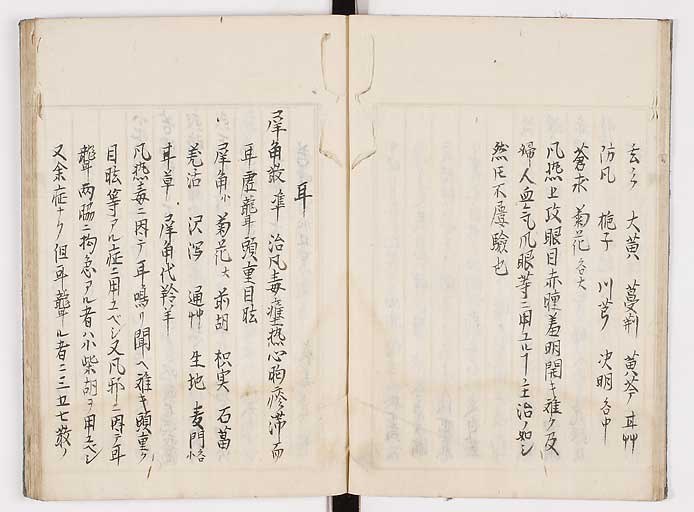 大黄 蔓荊 黄芩 甘艸
防凡 梔子 川芎 決明各中
蒼朮 菊花各大
凡熱上攻眼目赤腫羞明開キ難ク及
婦人血気凡眼等ニ用ユル
主治ノ如シ
然圧不屡験也
耳
犀角散準 治凡毒壅熱心胸痰滞而
耳虚聾頭重目眩
犀角小 菊花大 前胡 枳実 石菖
羌活 沢瀉 通艸 生地 麦門各
甘草小 犀角代羚羊
凡熱毒ニ因テ耳鳴リ聞ヘ難キ頭重ク
目眩等アル症ニ用ユベシ又凡邪ニ因テ耳
聾両脇ニ拘急アル者ハ小柴胡ヲ用ユベシ
又余症ナク但耳聾ル者ニ三五七散